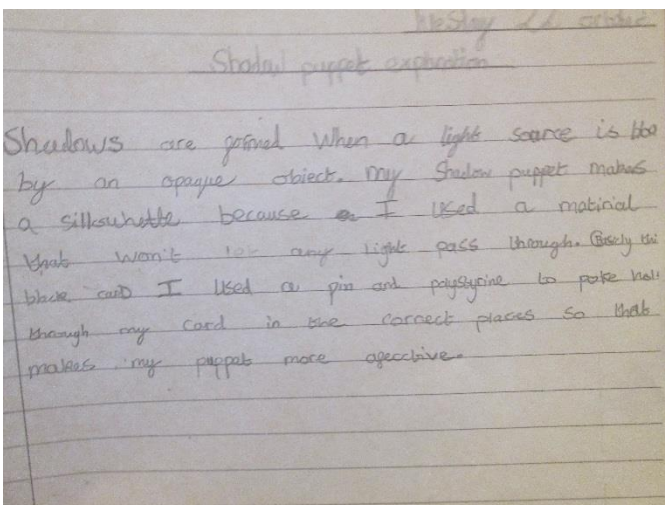 Shadow puppet explanation
Shadows are formed when a light source is blo
by an opaque object. my Shadow puppet makes
a sillsuhette because I used a matirial
that won't let any light pass through.
black card I used a pin and polystyrine to poke hol
through my card in the correct places so that
makes my puppet more affective.